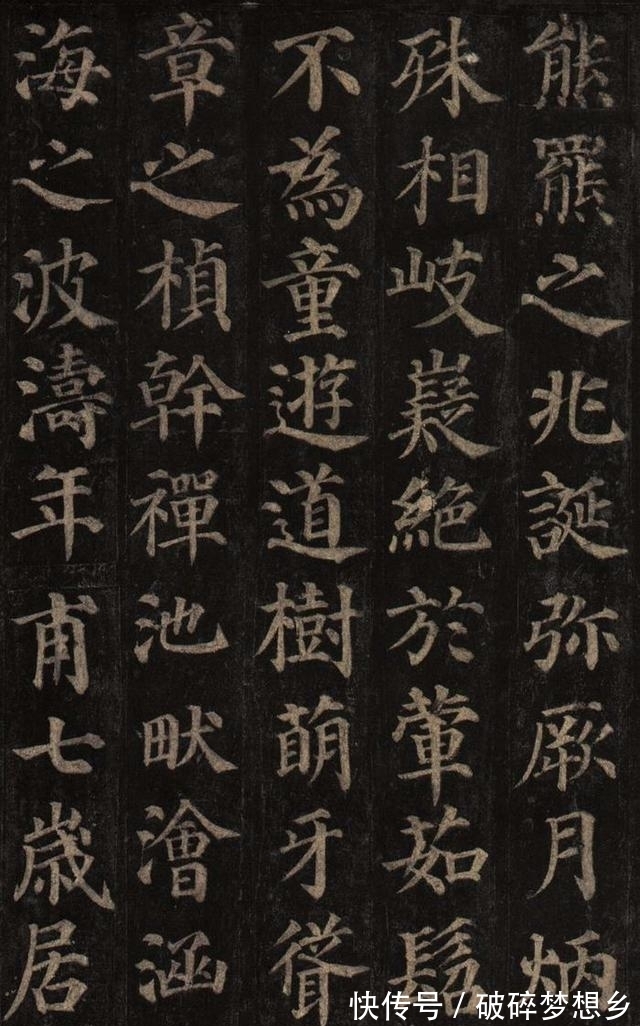 熊羆之兆誕弥厥月炳
殊相岐嶷絶於葷茹髫
不為童遊道樹萌牙聳
章之楨幹禪池畎澮涵
海之波濤年甫七歳居
快传号/破碎梦想乡